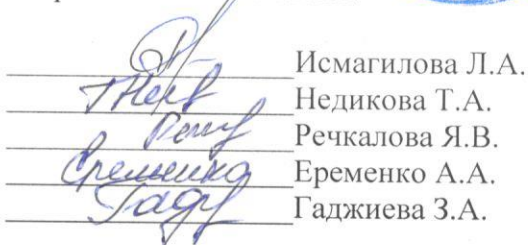 Исмагилова Л.А.
Недикова Т.А.
Речкалова Я.В.
Еременко А.А.
Гаджиева З.А.